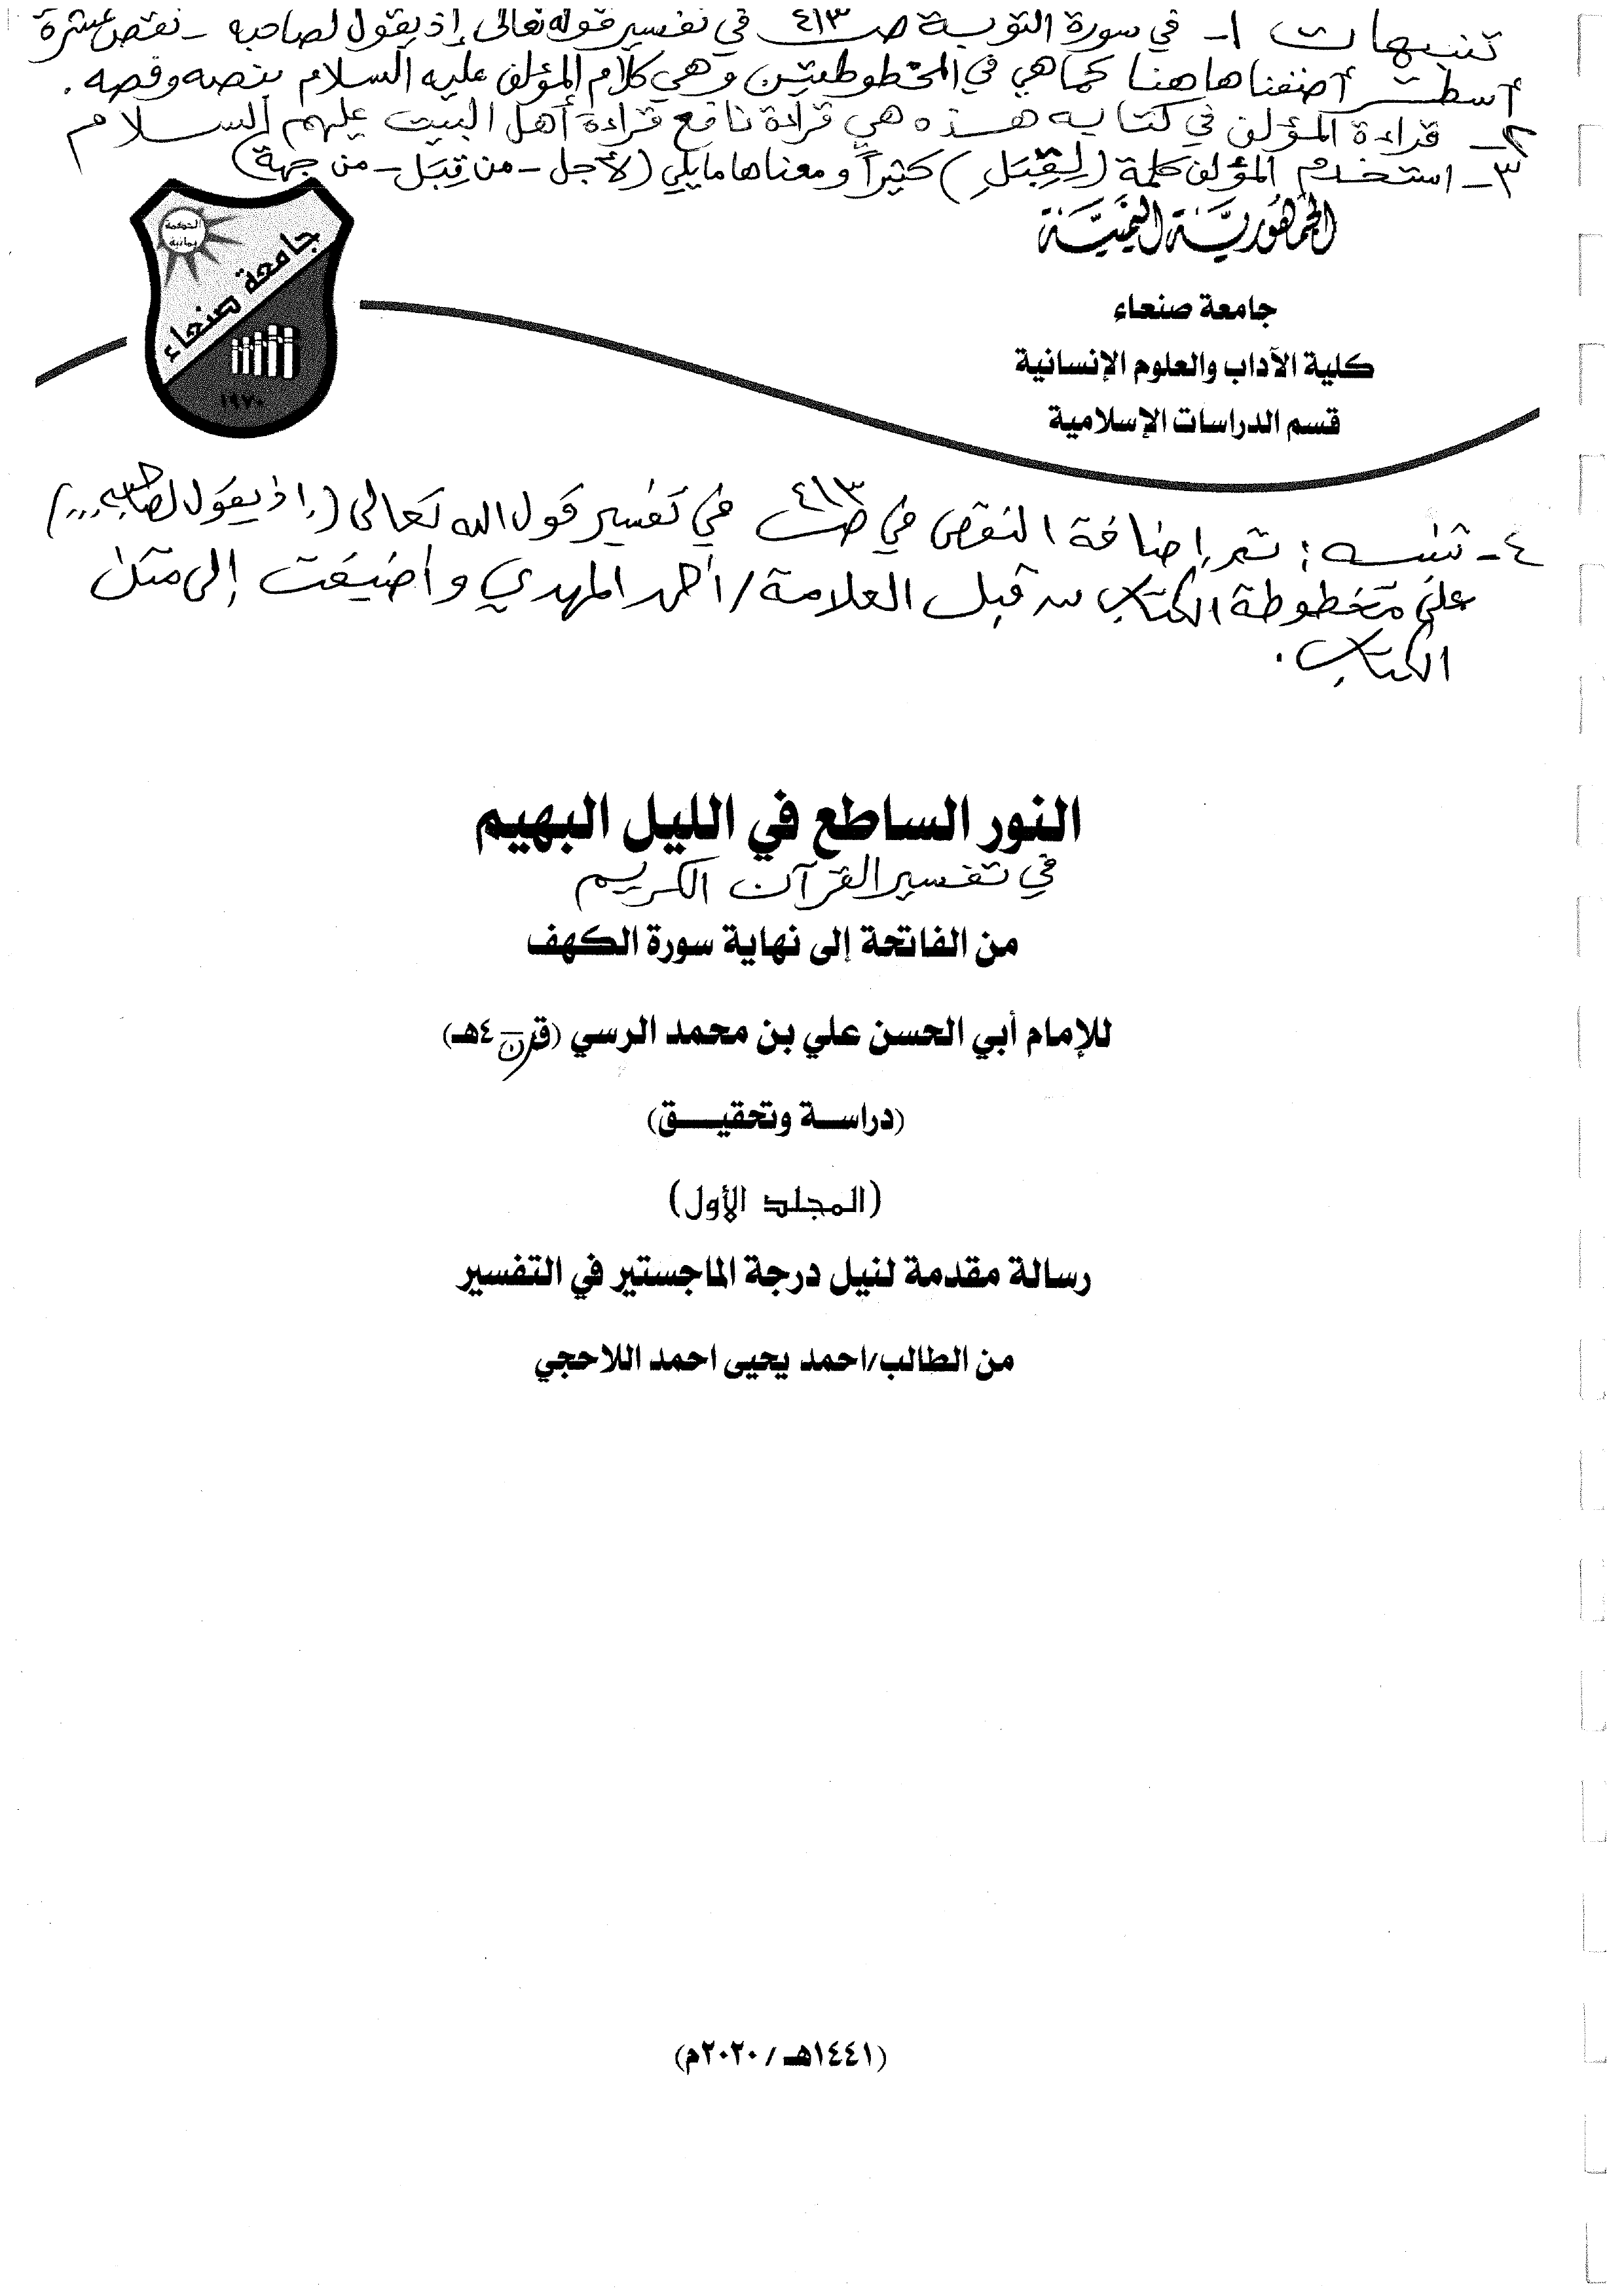 تنبيهات ١- في سورة التوبة صـ ٤١٣ في تفسير قوله تعالى إذ يقول لصاحبه - نقص عشرة
أسطر أضفناها هنا كما هي في المخطوطتين وهي كلام المؤلف عليه السلام بنصه وفصه .
٢- قراءة المؤلف في كتابه هذه هي قراءة نافع قراءة أهل البيت عليهم السلام
٣- استخدم المؤلف كلمة (لِقِبَلِ) كثيراً ومعناها مايلي (لأجل - من قِبَل - من جهة)
الجمهورية اليمنية
جامعة صنعاء
كلية الآداب والعلوم الإنسانية
قسم الدراسات الإسلامية
الحكمة
يمانية
جامعة صنعاء
١٩٧٠
٤- تنبيه : تم إضافة النقص في صـ ٤١٣ في تفسير قول الله تعالى (إذ يقول لصاحبه...)
على مخطوطة الكتاب من قبل العلامة/ أحمد المهدي وأضيفت إلى متن
الكتاب .
النور الساطع في الليل البهيم
في تفسير القرآن الكريم
من الفاتحة إلى نهاية سورة الكهف
للإمام أبي الحسن علي بن محمد الرسي (قرن ٤هـ)
(دراســة وتحقيــــق)
(المجلد الأول)
رسالة مقدمة لنيل درجة الماجستير في التفسير
من الطالب/احمد يحيى احمد اللاحجي
(١٤٤١هـ / ٢٠٢٠م)